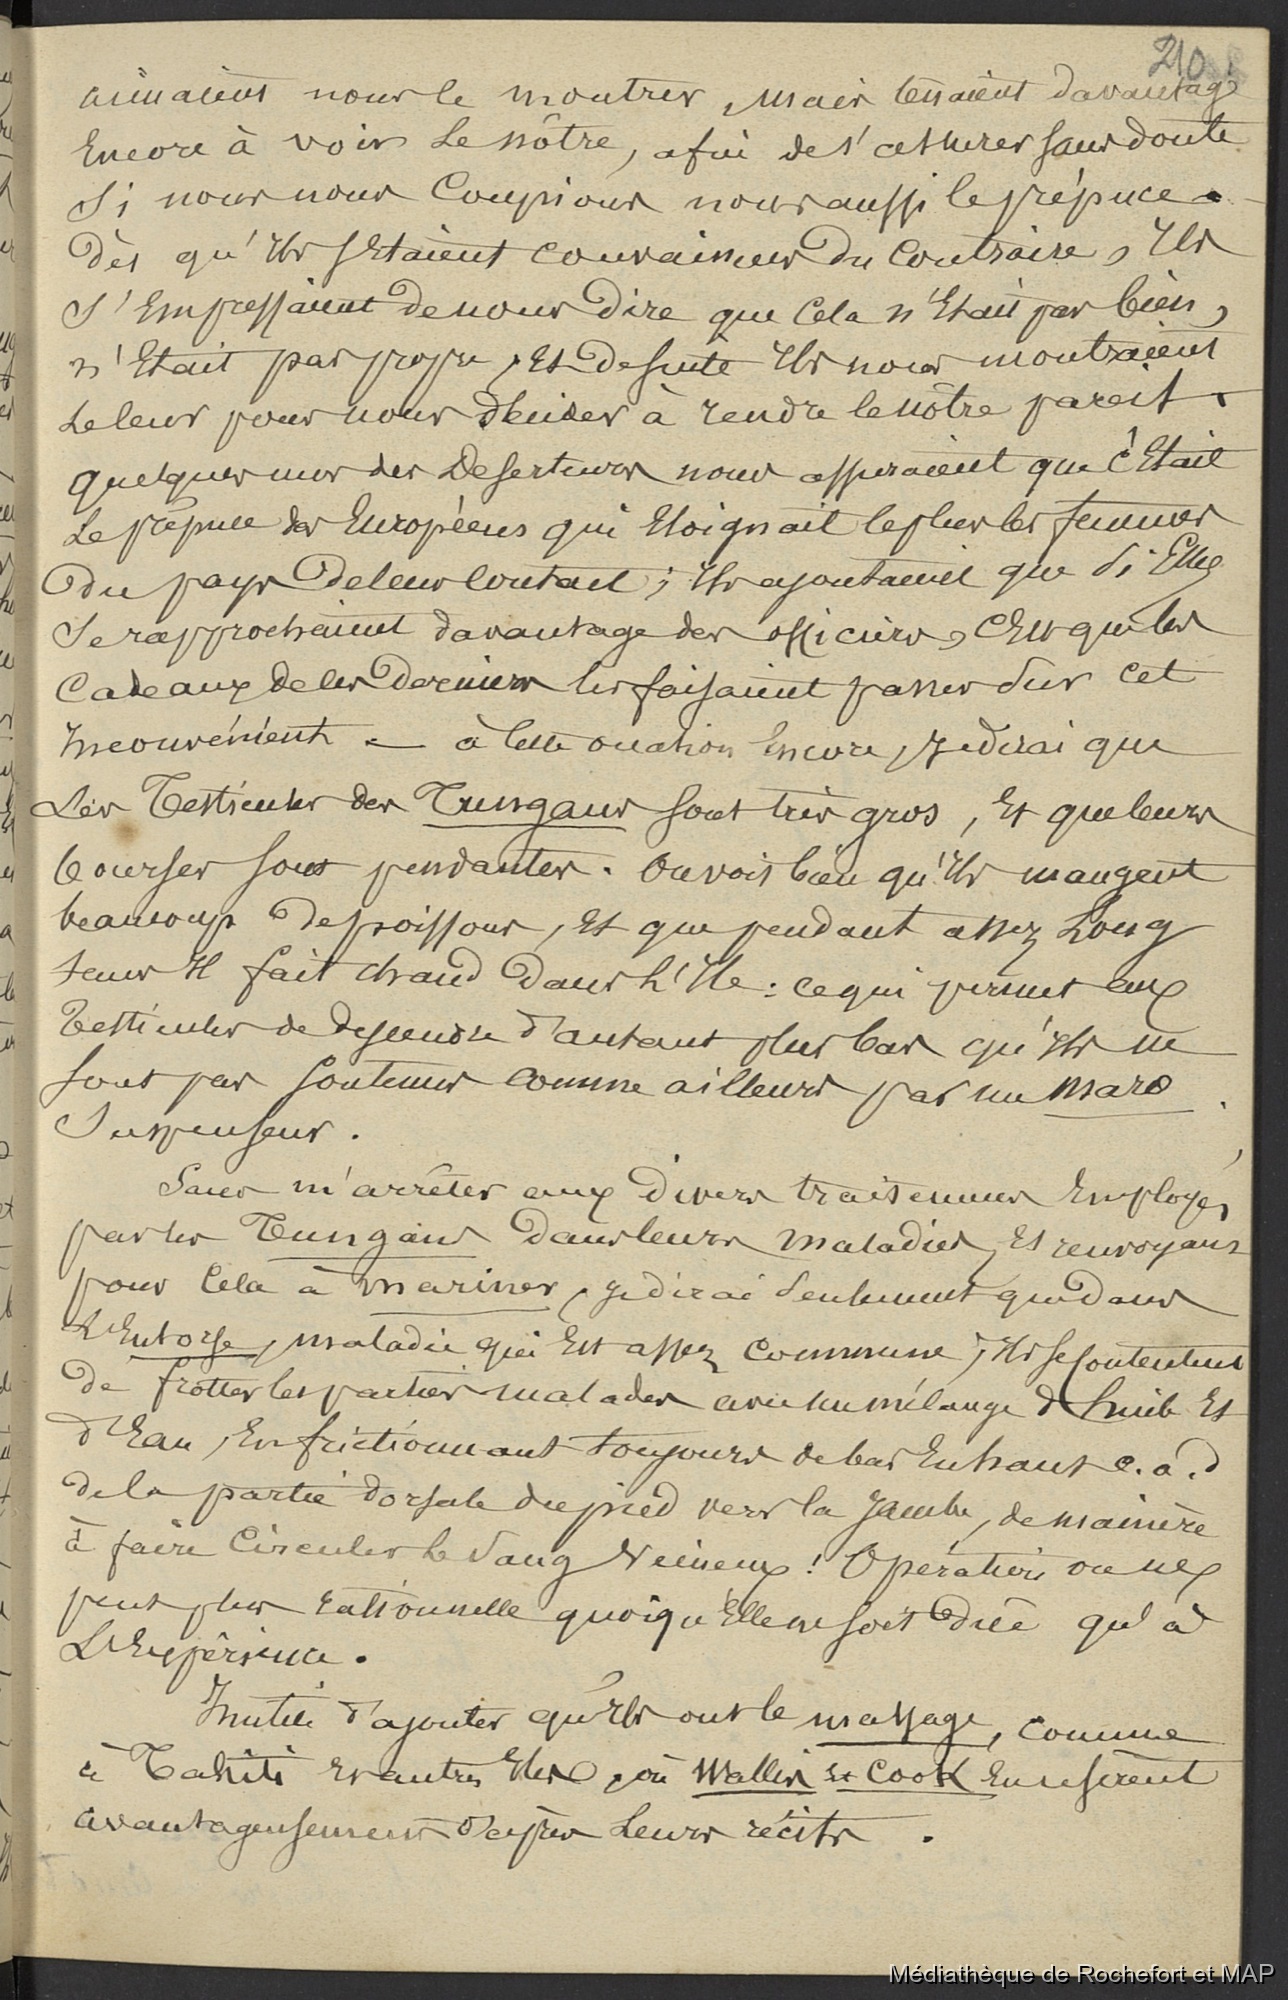 210
aimaient nous le montrer, mais tenaient davantage
Encore à voir le nôtre, afin de s'assurer sans doute
Si nous nous Coupions nous aussi le prépuce.
Dès qu'ils s'Etaient convaincus du Contraire, Ils
S'Empressaient de nous dire que cela n'Etait pas bien,
n'Etait pas propre, Et de suite Ils nous montraient
Le leur pour nous décider à rendre le nôtre pareil.
quelques uns des Deserteurs nous assuraient que c'Etait
Le prépuce des Européens qui Eloignait le plus les femmes
Du pays De leur Contact; Ils ajoutaient que si Elles
Se rapprochaient davantage des officiers, c'Est que les
Cadeaux de ces Derniers les faisaient passer sur cet
Inconvénient. — à cette occasion Encore, Je dirai que
Les Testicules des Tungans sont très gros, Et que leurs
bourses sont pendantes. On voit bien qu'Ils mangent
beaucoup de poissons, Et que pendant assez Long
tems Il fait chaud Dans L'Ile: ce qui permet aux
Testicules de descendre d'autant plus bas qu'Ils ne
Sont pas Soutenus comme ailleurs par un maro
Suspenseur.
Sans m'arrêter aux divers traitemens Employés
par les Tungans dans leurs maladies, Et renvoyant
pour Cela à mariner, Je dirai seulement que dans
L'Entorse, maladie qui Est assez commune, Ils se Contentent
De frotter les parties malades avec un mélange d'huile Et
d'Eau, En frictionnant toujours de bas En haut c. a. d
de la partie dorsale du pied vers la Jambe, de manière
à faire Circuler le Sang Veineux! Opération on ne
peut plus rationnelle quoiqu'Elle ne soit Düe qu'à
L'Expérience.
Inutile d'ajouter qu'Ils ont le massage, comme
à Tahiti Et autres Iles, où Wallis & Cook En usèrent
avantageusement d'après Leurs récits.
Médiathèque de Rochefort et MAP